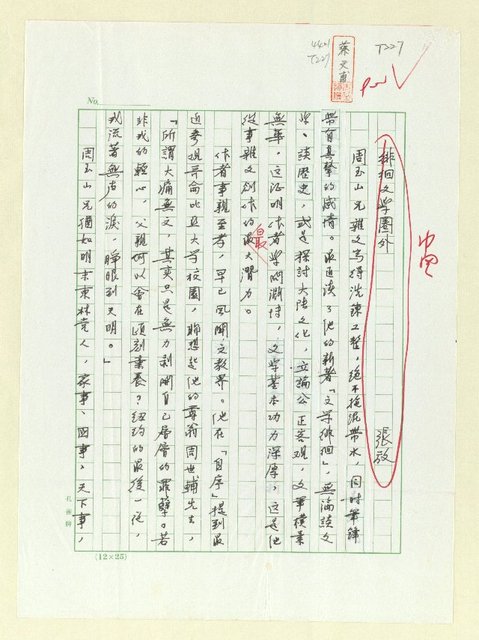 T227
4421
T227
蔡文甫
No.
徘徊文學圈外
張放
周玉山兄雜文寫得洗鍊工整，絕不拖泥帶水，同時筆鋒
帶有真摯的感情。最近讀了他的新著「文學徘徊」，無論談文
學、談歷史，或是探討大陸文化，立論公正客觀，文筆樸素
無華，這證明作者學問淵博，文學基本功力深厚，這是他
從事雜文創作的最大潛力。
最
作者事親至孝，早已風聞文教界。他在「自序」提到最
近參觀哥倫比亞大學校園，聯想起他的尊翁周世輔先生，
「所謂大痛無文，其實只是無力剝開自己層層的罪孽。若
非我的輕心，父親何以會在頃刻棄養？紐約的最後一夜，
我流著無聲的淚，睜眼到天明。」
周玉山兄猶如明末東林黨人，家事、國事，天下事，
(12×25)